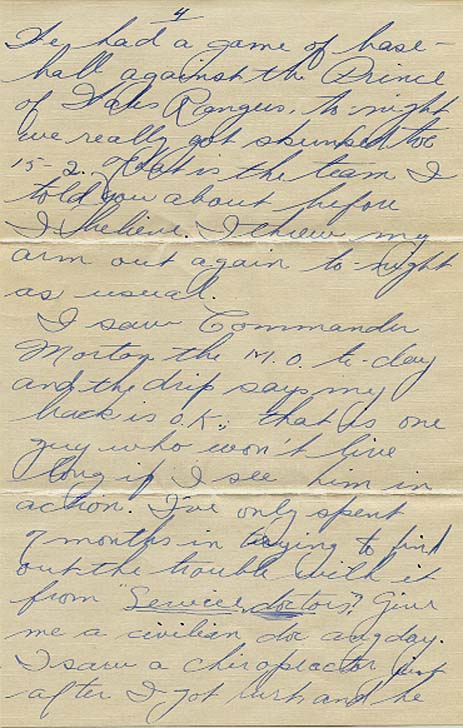 4
We had a game of base-
ball against the Prince
of Wales Rangers, to-night
we really got skunked too
15-2. That is the team I
told you about before
I believe. I threw my
arm out again to-night
as usual.
I saw Commander
Morton the M.O. to-day
and the drip says my
back is O.K.; that is one
guy who won't live
long if I see him in
action. I've only spent
7 months in trying to find
out the trouble with it
from "Service doctors"? Give
me a civilian doc anyday.
I saw a chiropractor just
after I got hurt and he